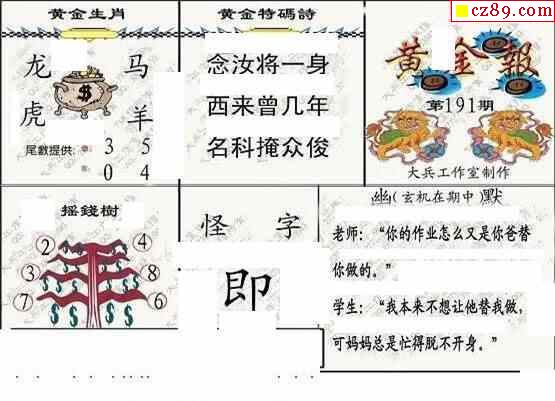 cz89.com
黄金生肖
龙 马
虎 羊
尾數提供:
3 5
0 4
黄金特碼詩
念汝将一身
西来曾几年
名科掩众俊
黄金報
第191期
大兵工作室制作
摇錢樹
② ④
③ ⑧
⑦ ⑥
怪 字
即
幽(玄机在期中)默
老师:“你的作业怎么又是你爸替
你做的。”
学生:“我本来不想让他替我做,
可妈妈总是忙得脱不开身。”